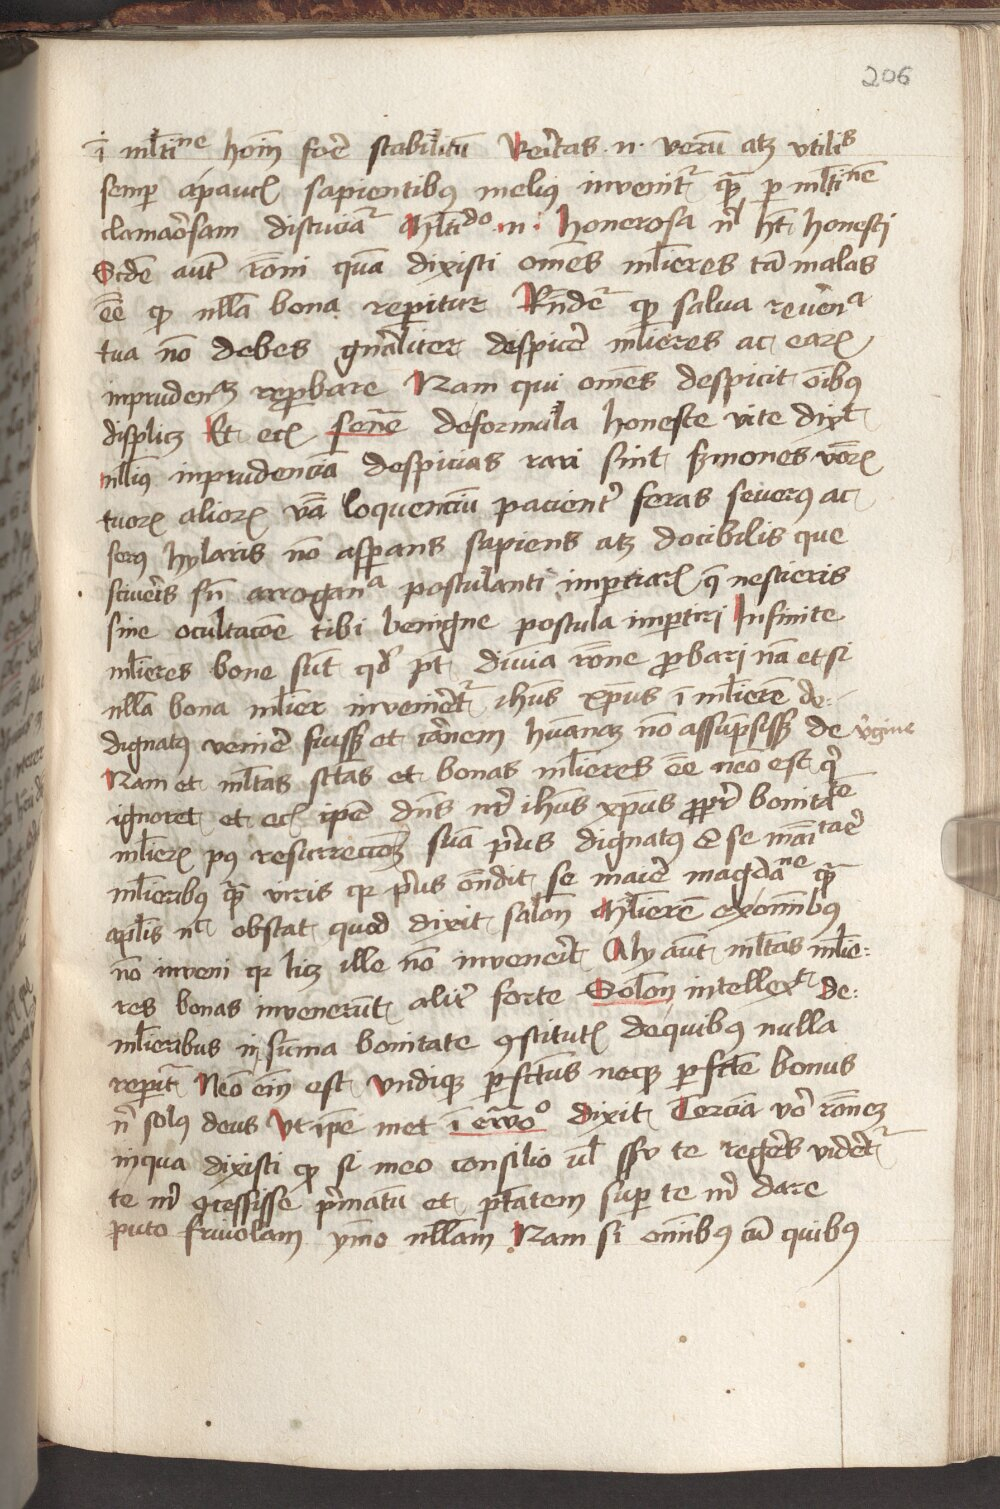 206
ī ml̄tine hoīm foꝛe stabilitū Veritas .n. verū atqꝫ vtilis
semꝑ a paucꝭ sapientibꝰ melius invenit᷑ qᷓ ꝑ ml̄tinē
clamōsam discuciat᷑ Ml̄tido .n. honerosa nil ht̄ honesti
Scd̄e aut̄ rōni quā dixisti om̄es ml̄ieres tā malas
eē ꝙ nll̄a bona reperitur Rn̄det᷑ ꝙ salua reuen̄a
tua nō debes gn̄aliter despicē ml̄ieres ac earꝝ
inpruden̄ꝫ reꝓbare Nam qui om̄es despicit oībꝰ
displicꝫ Et ecꝫ sen̄e de formula honeste vite dixt
nllīus inprudenciā despicias rari sint ẜmones
tuorꝝ aliorꝝ vā loquenciū pacient᷑ feras seuerꝰ ac
seꝛꝰ hylaris nō asꝑnans sapiens atꝫ docibilis que
sciueris sn̄ arrogan̄a postulanti imꝑtiarꝭ q̄ nescieris
sine ocultacōe tibi benigne postula imꝑtiri Infinite
ml̄ieres bone sūt qd̓ pt̄ diuīa rōne ꝓbari nā etsi
nll̄a bona ml̄ier inveniret᷑ ihūs xp̄us ī ml̄ierē de-
dignatꝰ venire fuissꝫ et carnem hūanaꝫ nō assūpsissꝫ de v̓gine
Nam et ml̄tas sc̄tas et bonas ml̄ieres eē neo est qͥ
ignoret et ecꝫ ip̄e dn̄s nr̄ ihūs xp̄us ꝓpt̓ bonitatē
ml̄ierꝝ pꝰ resurreccōeꝫ suā pͥus dignatꝰ ē se māitaꝛē
ml̄ieribꝰ qᷓ viris qꝛ pͥus on̄dit se maīe magdān̄e qᷓ
apl̄is nͨ obstat quod dixit salon̄ Ml̄ierē ex om̄ibꝰ
nō inveni qꝛ licꝫ ille nō invenerit Aly aūt ml̄tas ml̄ie-
res bonas invenerūt alit̓ forte Solon̄ intellexͭ de-
ml̄ieribus in sum̄a bonitate ꝯstitutꝭ de quibꝰ nulla
reꝑit᷑ Nēo eīm est vndiqꝫ ꝑfctūs neqꝫ ꝑfctē bonus
nͥ solꝰ deus Vt ip̄e met ī ew̄o dixit Terciā vō rōneꝫ
inqua dixisti ꝙ si meo consilio ul̄ te regeres videret᷑
te m̄ ꝯcessisse pͥmatū et ptātem suꝑ te m̄ dare
puto friuolam ymo nll̄am Nam si om̄ibꝰ cū quibꝰ